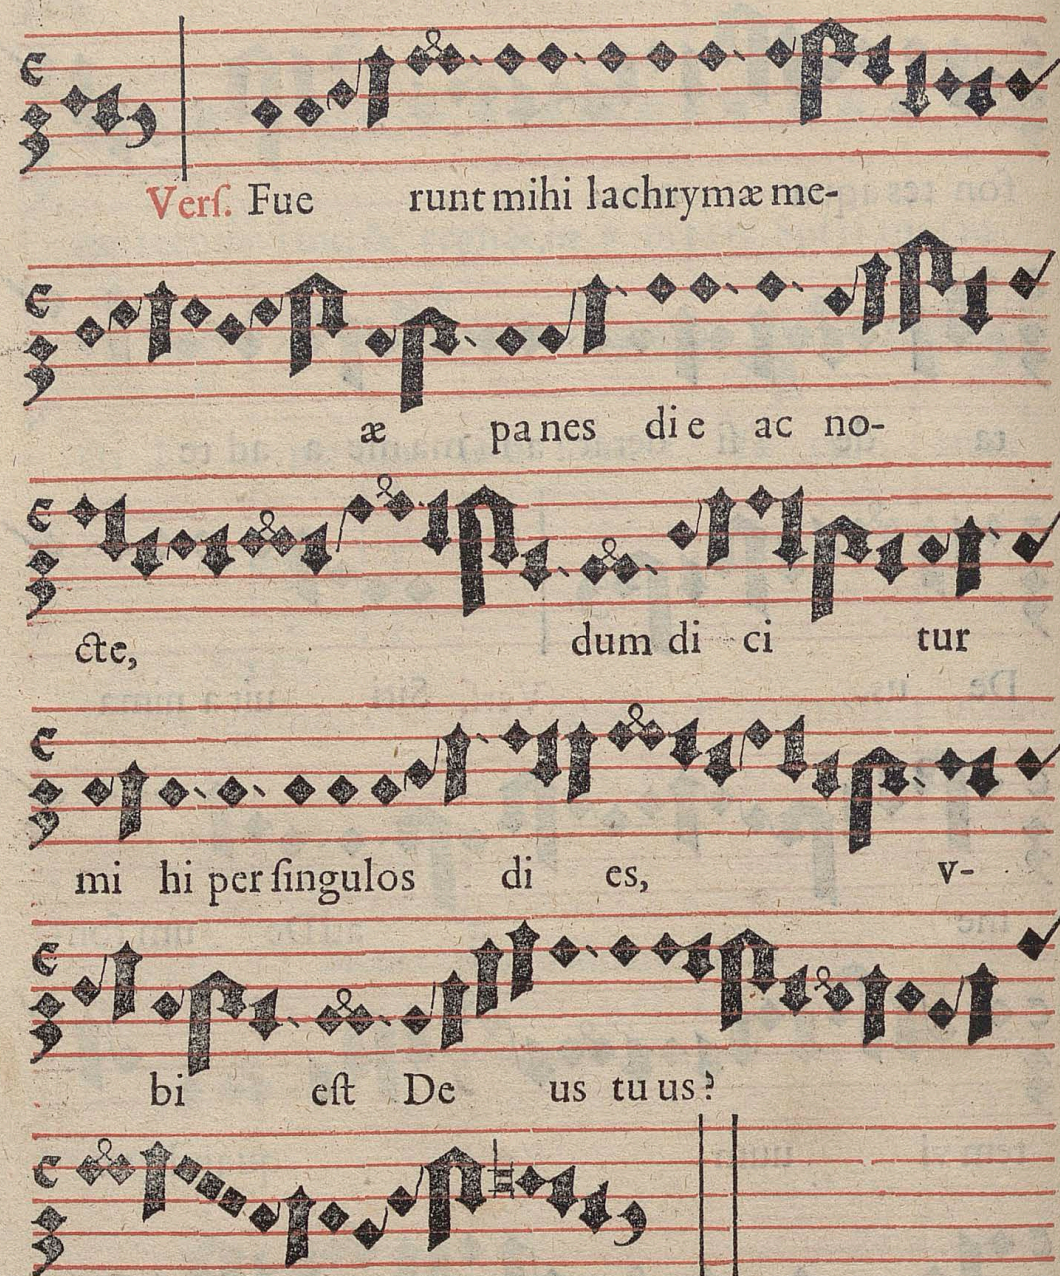 Verſ. Fue runt mihi lachrymæ me-
æ panes die ac no-
cte, dum di ci tur
mi hi per ſingulos di es, v-
bi eſt De us tuus?